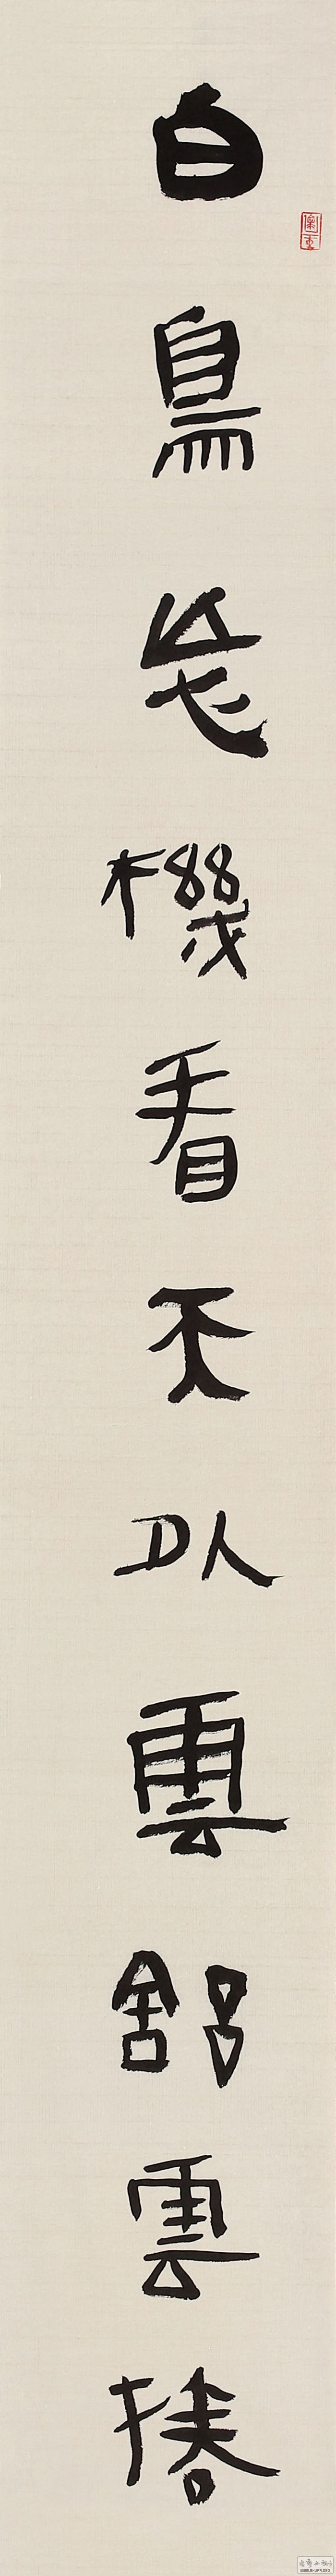 白鳥忘機看天外雲舒雲捲